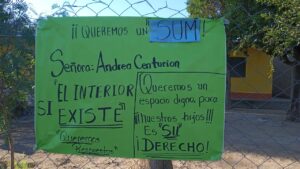 ¡¡ QUEREMOS UN "SUM"!!
Señora: Andrea Centurion
"EL INTERIOR
SI EXISTE"
Queremos
¡Queremos un
espacio digno, para
¡Nuestros hijos!!!
Es "SU"
¡DERECHO!